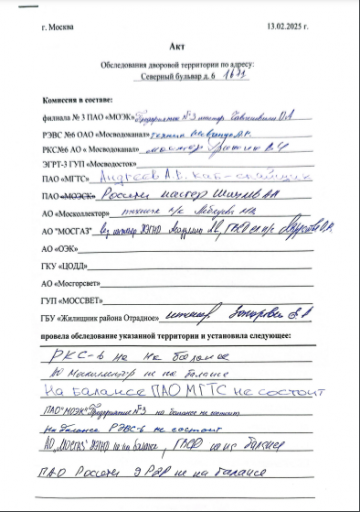 г. Москва 13.02.2025 г.
Акт
Обследования дворовой территории по адресу:
Северный бульвар д. 6
Комиссия в составе:
филиала № 3 ПАО «МОЭК» Предприятие №3 инженер
РЭВС №6 ОАО «Мосводоканал» техник
РКС№6 АО «Мосводоканал» мастер
ЭГРТ-3 ГУП «Мосводосток»
ПАО «МГТС» Андреев А.В. каб-спайщик
ПАО «МОЭСК» Россети мастер
АО «Москоллектор» техник
АО "МОСГАЗ" инженер
АО «ОЭК»
ГКУ «ЦОДД»
АО «Мосгорсвет»
ГУП «МОССВЕТ»
ГБУ «Жилищник района Отрадное» инженер
провела обследование указанной территории и установила следующее:
РКС-6 на балансе
АО Москоллектор не на балансе
На балансе ПАО МГТС не состоит
ПАО "МОЭК" Предприятие №3 на балансе не состоит
На балансе РЭВС-6 не состоит
АО "МОСГАЗ" не на балансе,
ПАО Россети не на балансе